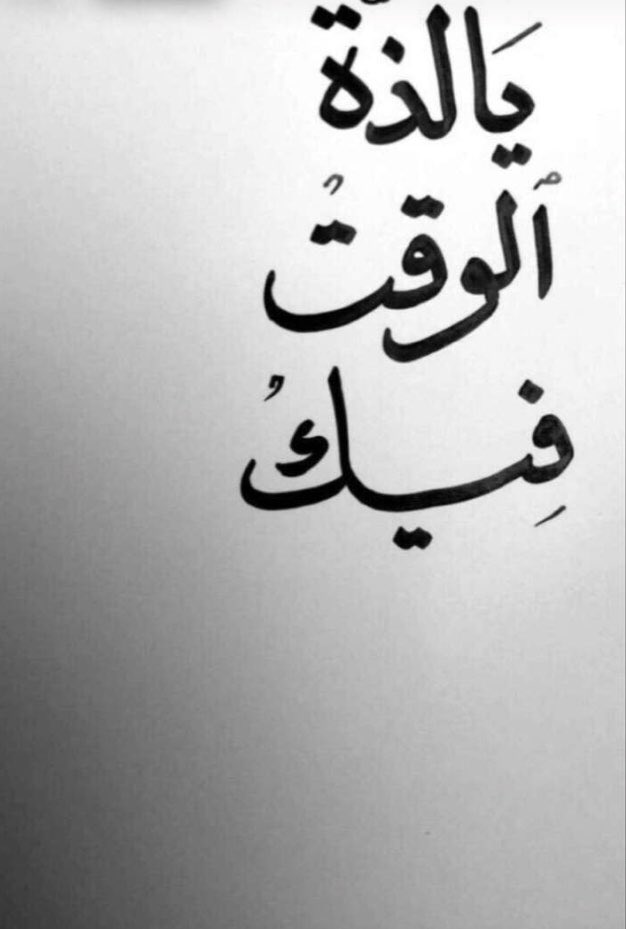 يَالذّة
ٱلوقتُ
فِيكُ